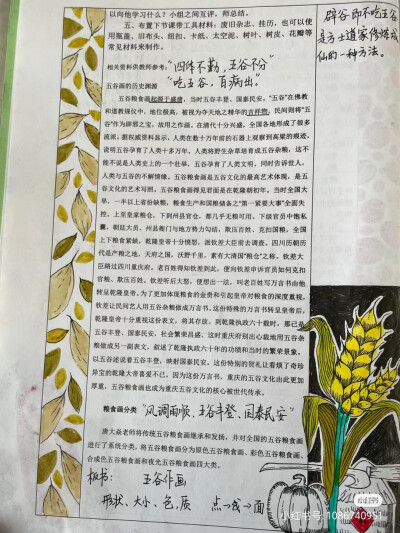 以向他学习什么？小组之间互评，师总结。
五、布置下节课带工具材料：废旧杂志、挂历，也可以使
用瓶盖、旧布头、纽扣、卡纸、太空泥、树叶、树皮、花瓣等
常见材料来制作。
相关资料供教师参考："四体不勤，五谷不分"
五谷画的历史渊源 "吃五谷，百病出。"
五谷粮食画起源于盛唐，当时五谷丰登、国泰民安。"五谷"在佛教
和道教规仪中，地位很高，被视为夺天地之精华的吉祥物；民间则将"五
谷"作为辟邪之宝，故用之作画。在清代十分兴盛，全国各地形成了很多
流派。据权威资料显示，人类在数十万年前的石器上观察到高粱的痕迹，
说明五谷孕育了人类十多万年。人类将野生杂草培育成五谷杂粮，这不
能不说是人类史上的一个壮举，五谷孕育了人类文明，同时告诉世人，
人类与五谷的不解情缘。五谷粮食画是五谷文化的最高艺术体现，是五
谷文化的艺术写照。五谷粮食画得见君面是在乾隆朝初年。当时全国大
旱，一半以上省份缺粮，粮食生产和国粮储备之"第一紧要大事"全面失
控。上至皇家粮仓，下到州县官仓，都几乎无粮可用。下级官员中饱私
囊，朝廷大员、州县衙门与地方势力勾结，欺压百姓、克扣国粮，全国
上下粮食紧缺，乾隆皇帝十分愤怒，派钦差大臣前去调查。四川历朝历
代是产粮之地，天府之国，沃野千里，素有大清国"粮仓"之称。钦差大
臣路过四川重庆府，老百姓得知钦差到此，便向钦差申诉官员如何克扣
官粮、欺压百姓。钦差听后大怒，便想出一法，叫老百姓写万言书由他
转呈乾隆皇帝。为了更加体现粮食的金贵和引起皇帝对粮食的深度重视，
钦差让民间艺人用五谷杂粮做成万言书。这份特殊的万言书转呈皇帝后，
乾隆皇帝十分重视这份表文，将其存放。到乾隆执政六十载时，那已是
五谷丰登、国泰民安、社会繁荣昌盛。这时重庆府别出心裁地用五谷杂
粮做成另一副表文，叙述了乾隆执政六十年的功绩和当时的繁荣景象，
以五谷述说着五谷丰登，映射国泰民安。这份特别的贺礼让看烦了奇珍
异宝的乾隆大帝喜爱不已，因为这份万言书，重庆的五谷文化由此更加
厚重，五谷粮食画也成为重庆五谷文化的核心被世代传承。
粮食画分类 "风调雨顺，五谷丰登，国泰民安"
唐大焱老师将传统五谷粮食画继承和发扬，并对全国的五谷粮食画
进行了系统分类，将五谷粮食画分为原色五谷粮食画、彩色五谷粮食画、
合成色五谷粮食画和夜光五谷粮食画四大类。
板书： 五谷作画
形状、大小、色、质 点→线→面
辟谷即不吃五谷
是方士道家修炼成
仙的一种方法。
小红书
小红书号: 1086740951